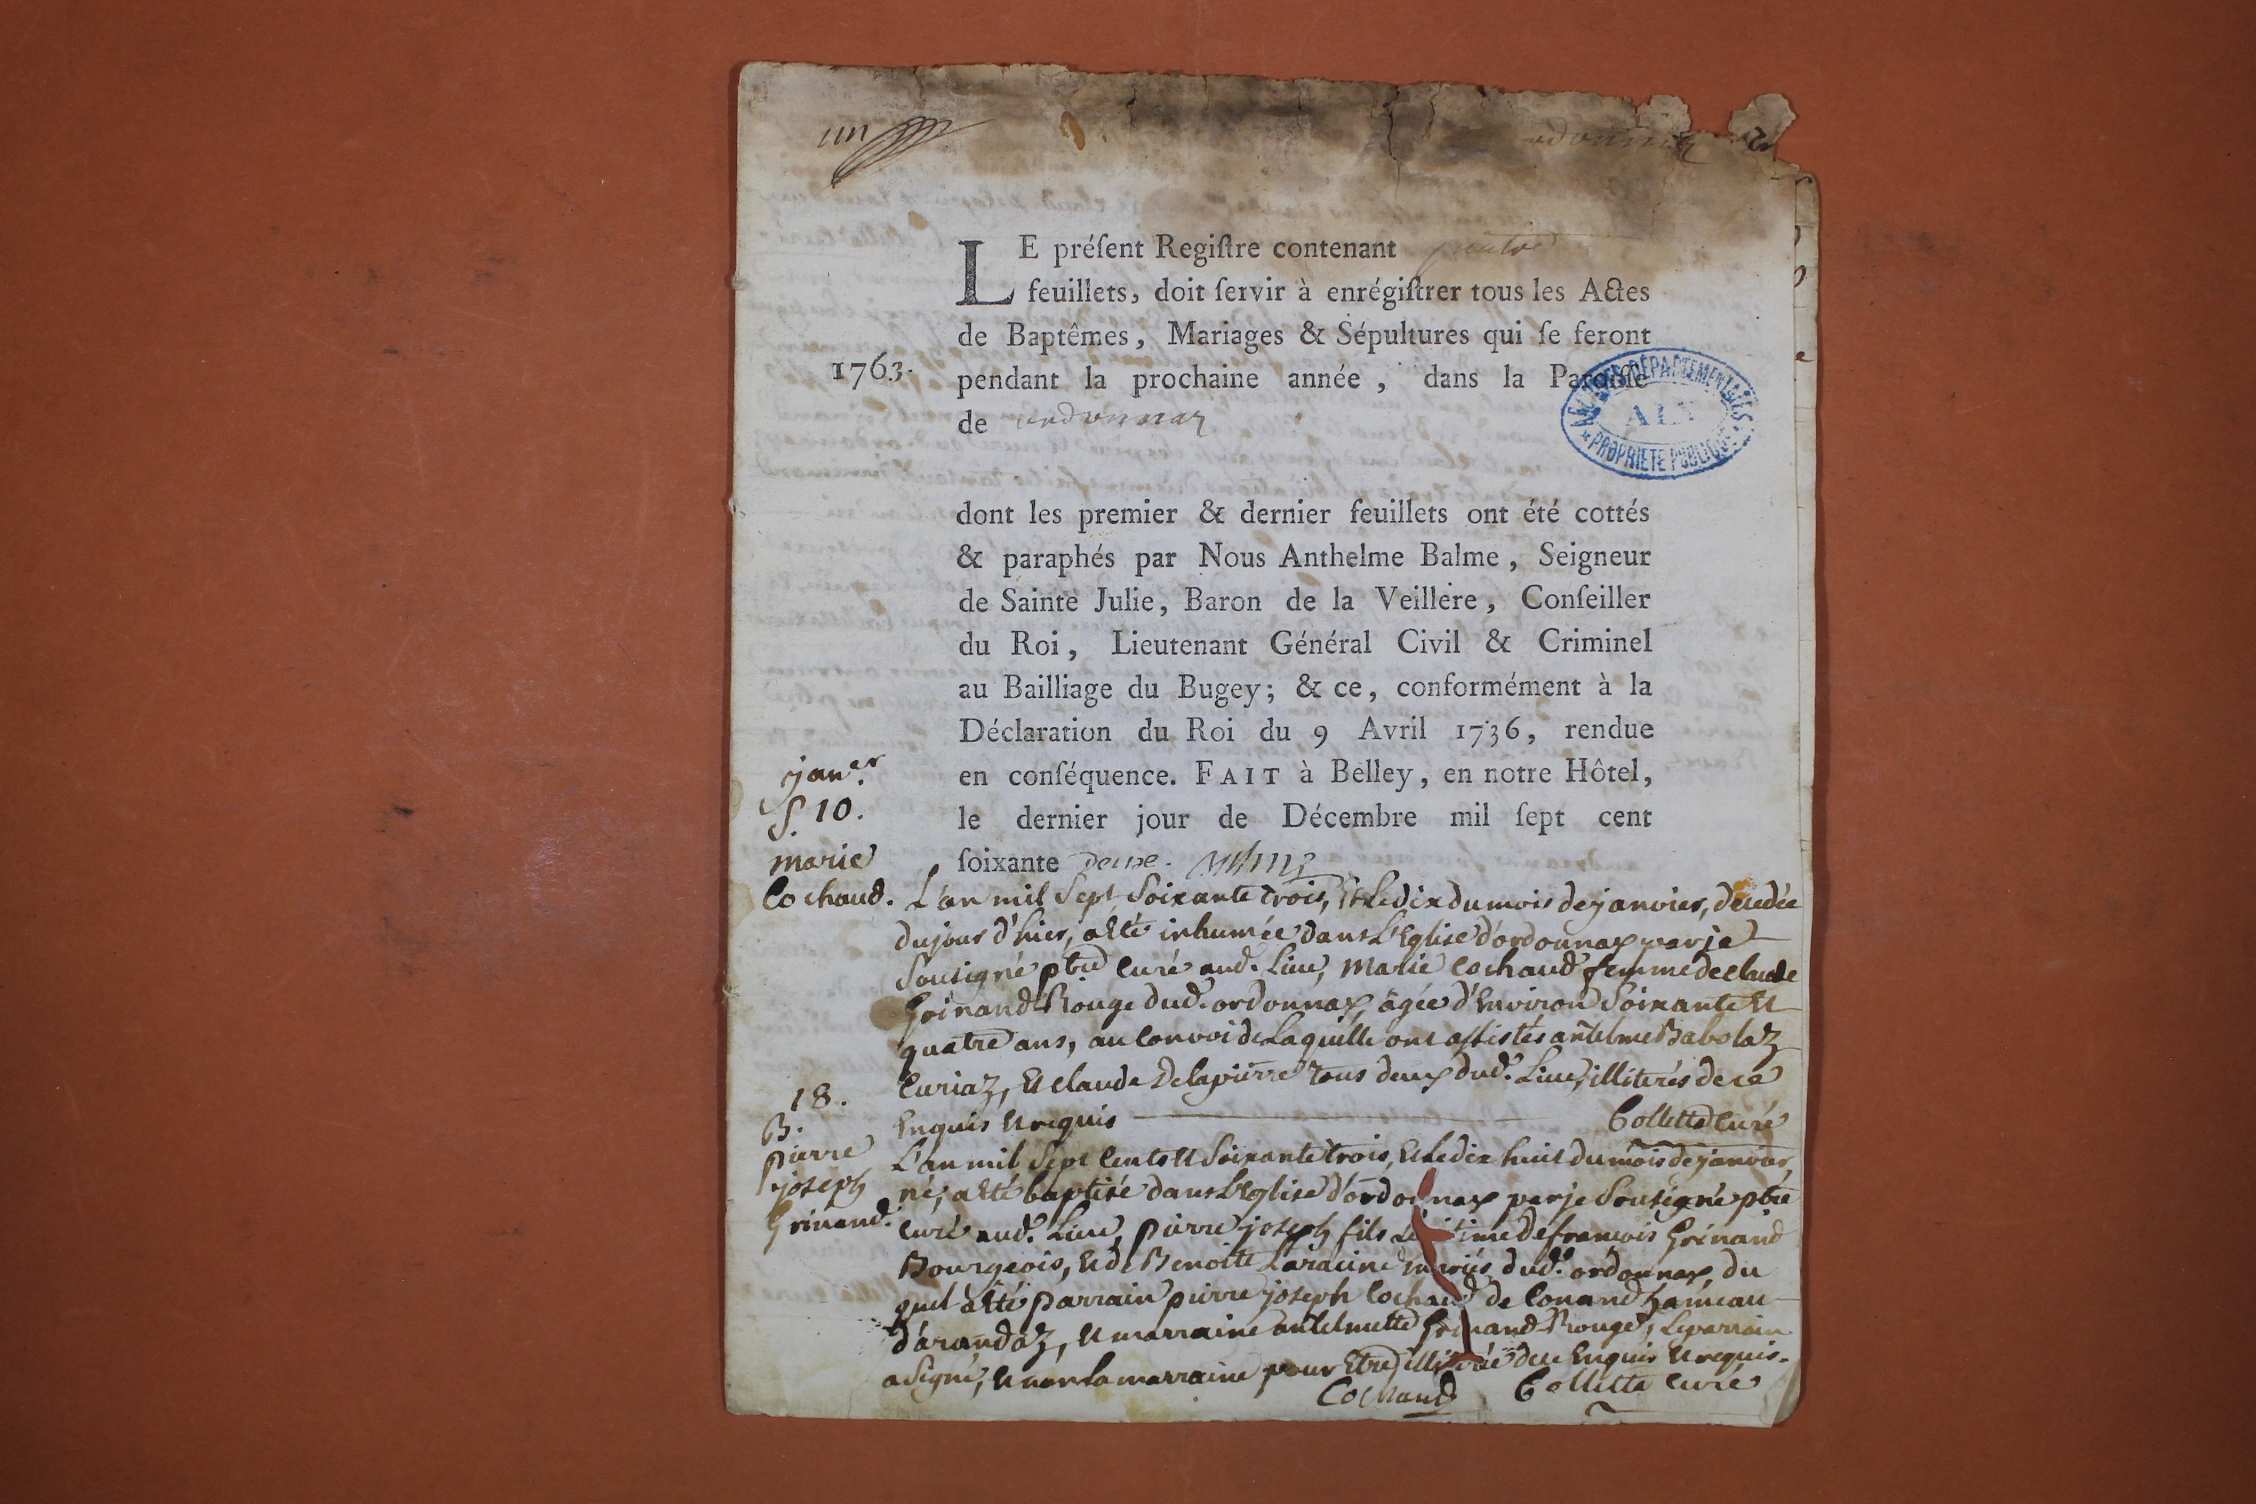 un
LE préſent Regiſtre contenant quatre
feuillets, doit ſervir à enrégiſtrer tous les Actes
de Baptêmes, Mariages & Sépultures qui ſe feront
1763.
pendant la prochaine année, dans la Paroiſſe
de ordonnaz
ARCHIVES DÉPARTEMENTALES
AIN
PROPRIÉTÉ PUBLIQUE
dont les premier & dernier feuillets ont été cottés
& paraphés par Nous Anthelme Balme, Seigneur
de Sainte Julie, Baron de la Veillere, Conſeiller
du Roi, Lieutenant Général Civil & Criminel
au Bailliage du Bugey; & ce, conformément à la
Déclaration du Roi du 9 Avril 1736, rendue
en conſéquence. FAIT à Belley, en notre Hôtel,
le dernier jour de Décembre mil ſept cent
ſoixante deux.
janer.
S. 10.
marie
Cochaud.
L'an mil Sept Soixante trois, Et Le dix du mois de janvier, décedée
du jour d'hier, a Eté inhumée dans L'Eglise d'ordonnax par je
Sousigné ptre Curé aud. Lieu, Marie Cochaud femme de claude
Grinand Rouge dud. ordonnax, âgée d'Environ Soixante Et
quatre ans, au Convoi de Laquelle ont assistés antelme Babolaz
Curiaz, Et claude Delapierre tous deux dud. Lieu, illiterés de ce
Enquis Et requis
Collette Curé
18.
B.
pierre
joseph
Grinand.
L'an mil Sept Cents Et Soixante trois, Et Le dix huit du mois de janvier,
né, a Eté baptisé dans L'Eglise d'ordonnax par je Sousigné ptre
Curé aud. Lieu, pierre joseph fils Légitime de francois Grinand
Bourgeois, Et de Benoitte Laracine mariés dud. ordonnax, du
quel a Eté Parrain pierre joseph Cochaud de Conand hameau
d'arandaz, Et marraine antelmette Grinand Rouge, Le parrain
a Signé, Et non la marraine pour Etre illiterée de ce Enquis Et requis.
Cochaud Collette Curé